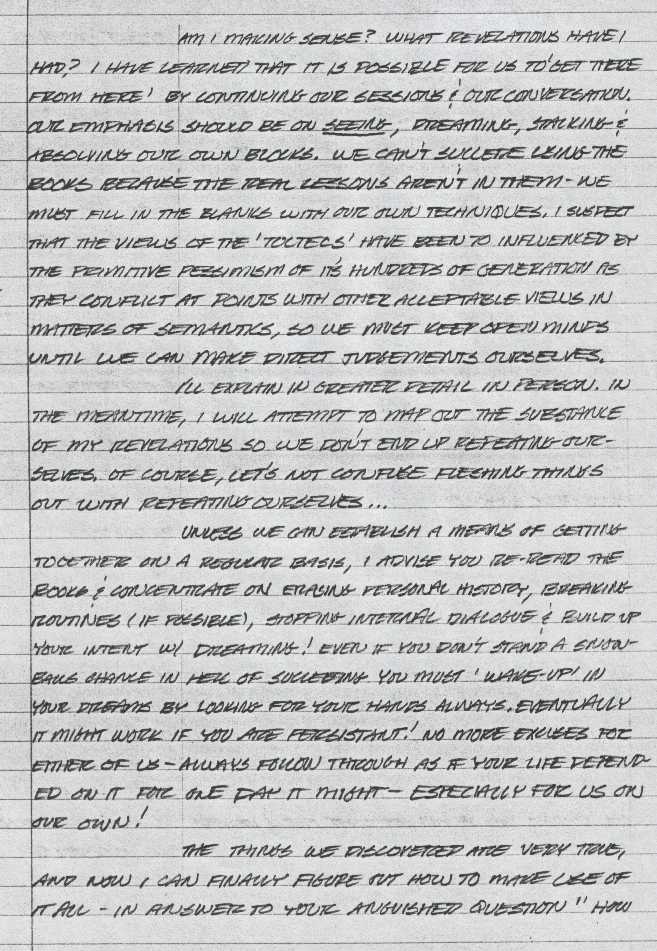 AM I MAKING SENSE? WHAT REVELATIONS HAVE I
HAD? I HAVE LEARNED THAT IT IS POSSIBLE FOR US TO 'GET THERE
FROM HERE' BY CONTINUING OUR SESSIONS & OUR CONVERSATION.
OUR EMPHASIS SHOULD BE ON SEEING, DREAMING, STALKING &
ABSOLVING OUR OWN BLOCKS. WE CAN'T SUCCEED USING THE
BOOKS BECAUSE THE REAL LESSONS AREN'T IN THEM - WE
MUST FILL IN THE BLANKS WITH OUR OWN TECHNIQUES. I SUSPECT
THAT THE VIEWS OF THE 'TOLTECS' HAVE BEEN TO INFLUENCED BY
THE PRIMITIVE PESSIMISM OF IT'S HUNDREDS OF GENERATION AS
THEY CONFLICT AT POINTS WITH OTHER ACCEPTABLE VIEWS IN
MATTERS OF SEMANTICS, SO WE MUST KEEP OPEN MINDS
UNTIL WE CAN MAKE DIRECT JUDGEMENTS OURSELVES.
I'LL EXPLAIN IN GREATER DETAIL IN PERSON. IN
THE MEANTIME, I WILL ATTEMPT TO MAP OUT THE SUBSTANCE
OF MY REVELATIONS SO WE DON'T END UP REPEATING OUR-
SELVES. OF COURSE, LET'S NOT CONFUSE FLESHING THINGS
OUT WITH REPEATING OURSELVES...
UNLESS WE CAN ESTABLISH A MEANS OF GETTING
TOGETHER ON A REGULAR BASIS, I ADVISE YOU RE-READ THE
BOOKS & CONCENTRATE ON ERASING PERSONAL HISTORY, BREAKING
ROUTINES (IF POSSIBLE), STOPPING INTERNAL DIALOGUE & BUILD UP
YOUR INTENT W/ DREAMING! EVEN IF YOU DON'T STAND A SNOW-
BALLS CHANCE IN HELL OF SUCCEEDING YOU MUST 'WAKE-UP' IN
YOUR DREAMS BY LOOKING FOR YOUR HANDS ALWAYS. EVENTUALLY
IT MIGHT WORK IF YOU ARE PERSISTANT! NO MORE EXCUSES FOR
EITHER OF US - ALWAYS FOLLOW THROUGH AS IF YOUR LIFE DEPEND-
ED ON IT FOR ONE DAY IT MIGHT - ESPECIALLY FOR US ON
OUR OWN!
THE THINGS WE DISCOVERED ARE VERY TRUE,
AND NOW I CAN FINALLY FIGURE OUT HOW TO MAKE USE OF
IT ALL - IN ANSWER TO YOUR ANGUISHED QUESTION "HOW